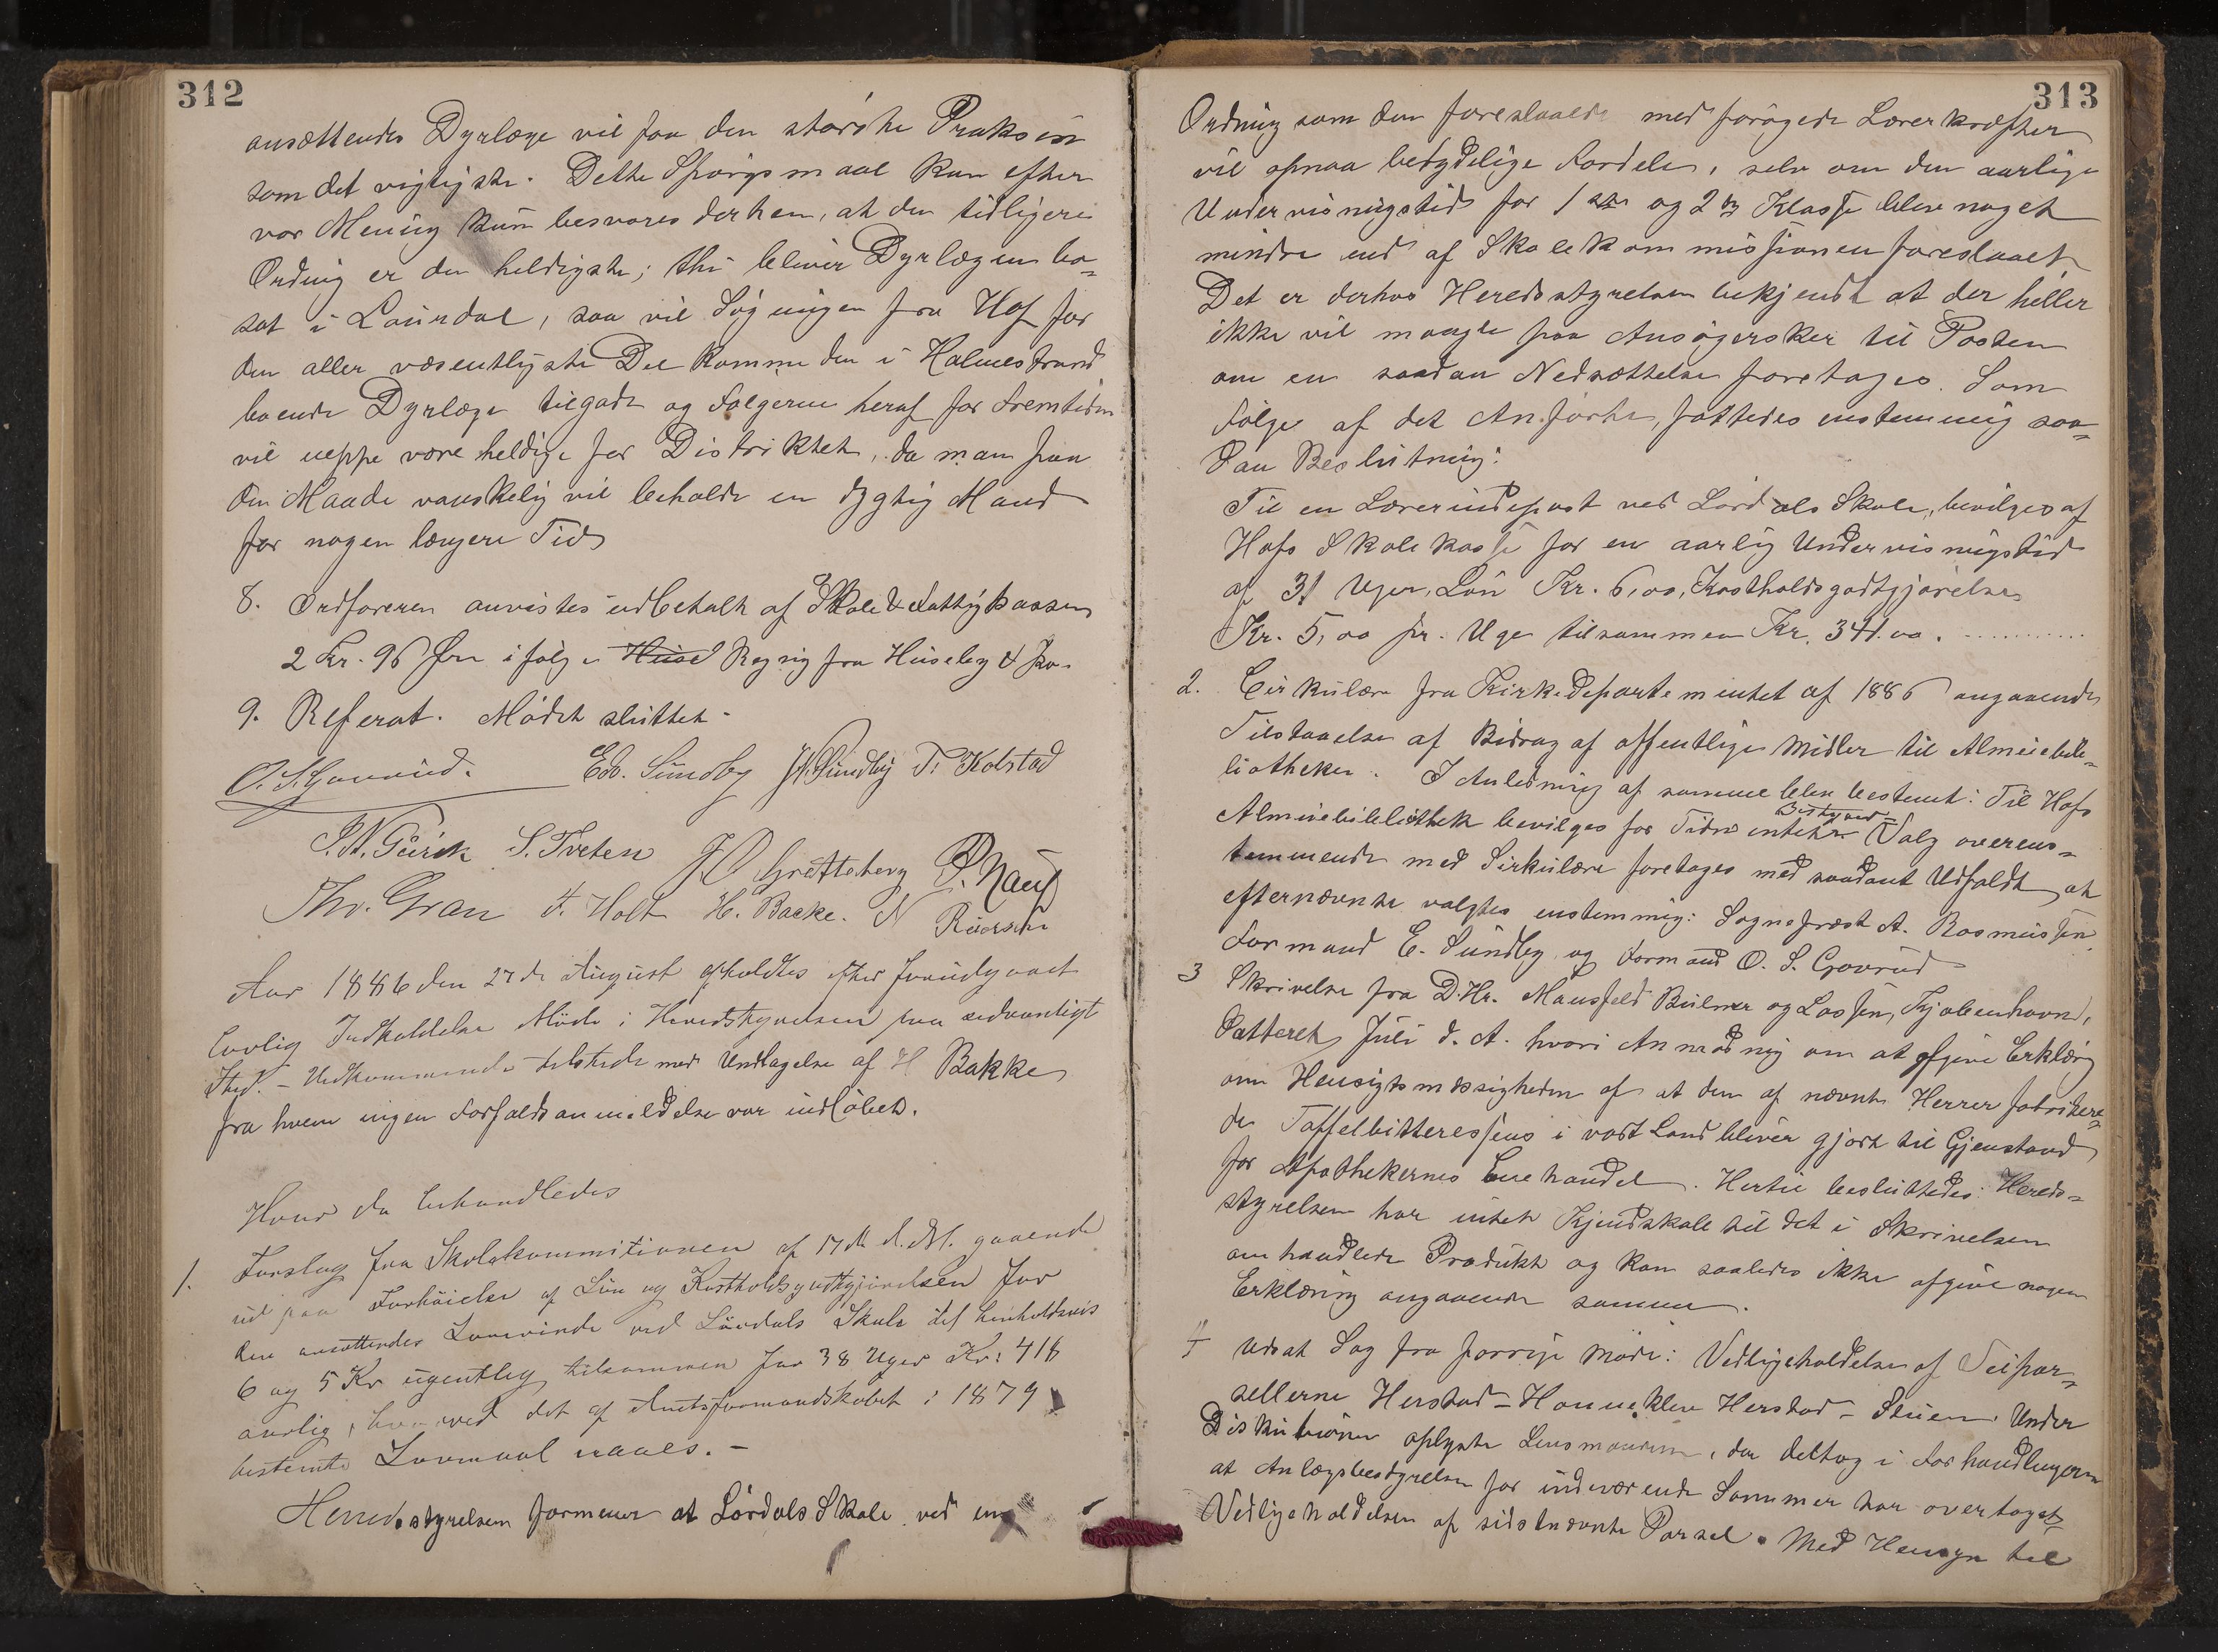 312
ansættendes Dyrlæge vil faa den største Praksis
som det vigtigste. Dette Spørgsmaal kan efter
vor Mening kun besvares derhen, at den tidligere
Ordning er den heldigste; thi bliver Dyrlægen bo-
sat i Laurdal, saa vil Søgningen fra Hof for
den aller væsentligste Del komme den i Holmestrand
boende Dyrlæge tilgode og Følgerne heraf for Fremtiden
vil neppe være heldige for Distriktet, da man paa
den Maade vanskelig vil beholde en dygtig Mand
for nogen længere Tid
8. Ordføreren anvistes udbetalt af Skole & Fattigkassen
2 Kr. 96 Øre ifølge Huse Regnig fra Huseby & Ko.
9. Referat. Mødet sluttet.
O. S. Govrud. Edv. Sundby T. Kolstad
S. Tveten J O Gretteberg P. Nauf
Thv. Gran A. Holt H. Backe. N
Aar 1886 den 27de August afholdtes efter forudgaaet
lovlig Indkaldelse Møde i Heredstyrelsen paa sedvanligt
Sted. – Vedkommende tilstede med Undtagelse af H Bakke
fra hvem ingen Forfaldsanmeldelse var indløbet.
Hvor da behandledes
1. Forslag fra Skolekommitionen af 17de d.M. gaaende
ud paa Forhøielse af Løn og Kostholdsgodtgjørelsen for
den ansættendes Lærerinde ved Lørdals Skole til henholdsvis
6 og 5 Kr ugentlig tilsammen for 38 Uger Kr: 418
aarlig, hvorved det af Amtsformandskabet i 1879
bestemte Lovmaal naaes. –
Heredsstyrelsen formener at Lørdals Skole ved en
313
Ordning som den foreslaaede med forøgede Lærerkræfter
vil opnaa betydelige Fordele, selv om den aarlige
Undervisningstid for 1ste og 2den Klasse blev noget
mindre end af Skolekommissionen foreslaaet
Det er derhos Heredsstyrelsen bekjendt at der heller
ikke vil mangle paa Ansøgersker til Posten
om en saadan Nedsættelse foretages. Som
Følge af det Anførte, fattedes enstemmig saa-
dan Beslutning:
Til en Lærerindepost ved Lørdals Skole, bevilges af
Hofs Skolekasse for en aarlig Undervisningstid
af 31 Uger, Løn Kr. 6,00, Kostholdsgodtgjørelse
Kr. 5,00 pr. Uge tilsammen Kr. 341.00. . . . . . . . . . .
2. Cirkulære fra Kirkedepartementet af 1886 angaaende
Tilstaaelse af Bidrag af offentlige Midler til Almuebib-
liotheker. I Anledning af samme blev bestemt: Til Hofs
Almuebibliothek bevilges for Tiden intet. Valg overens-
Bestyrer
stemmende med Sirkulære foretages med saadant Udfaldt, at
efternævnte valgtes enstemmig: Sogneprest A. Rosmussen
Formand E. Sundby og Formand O. S. Govrud
3 Skrivelse fra D.Hr. Mansfeld Bülner og Lassen, Kjøbenhavn,
Datteret Juli d. A. hvori Anmodnig om at afgive Erklærig
om Hensigtsmæssigheden af at den af nævnte Herrer fabrikere-
de Taffelbitteressens i vort Land bliver gjort til Gjenstand
for Apothekernes Enehandel. Hertil besluttedes: Hereds-
styrelsen har intet Kjendskab til det i Skrivelsen
omhandlede Produkt og kan saaledes ikke afgive nogen
Erklæring angaaende samme.
4 Udsat Sag fra forrige Møde: Vedligeholdelse af Veipar-
sellerne Herstad – Hanekleve Herstad – Stuen. Under
Diskutionen oplyste Lensmanden, der deltog i Forhandlingerne
at Anlægsbestyrelsen for indeværende Sommer har overtaget
Vedligeholdelsen af sidstnævnte Parsel. Med Hensyn til